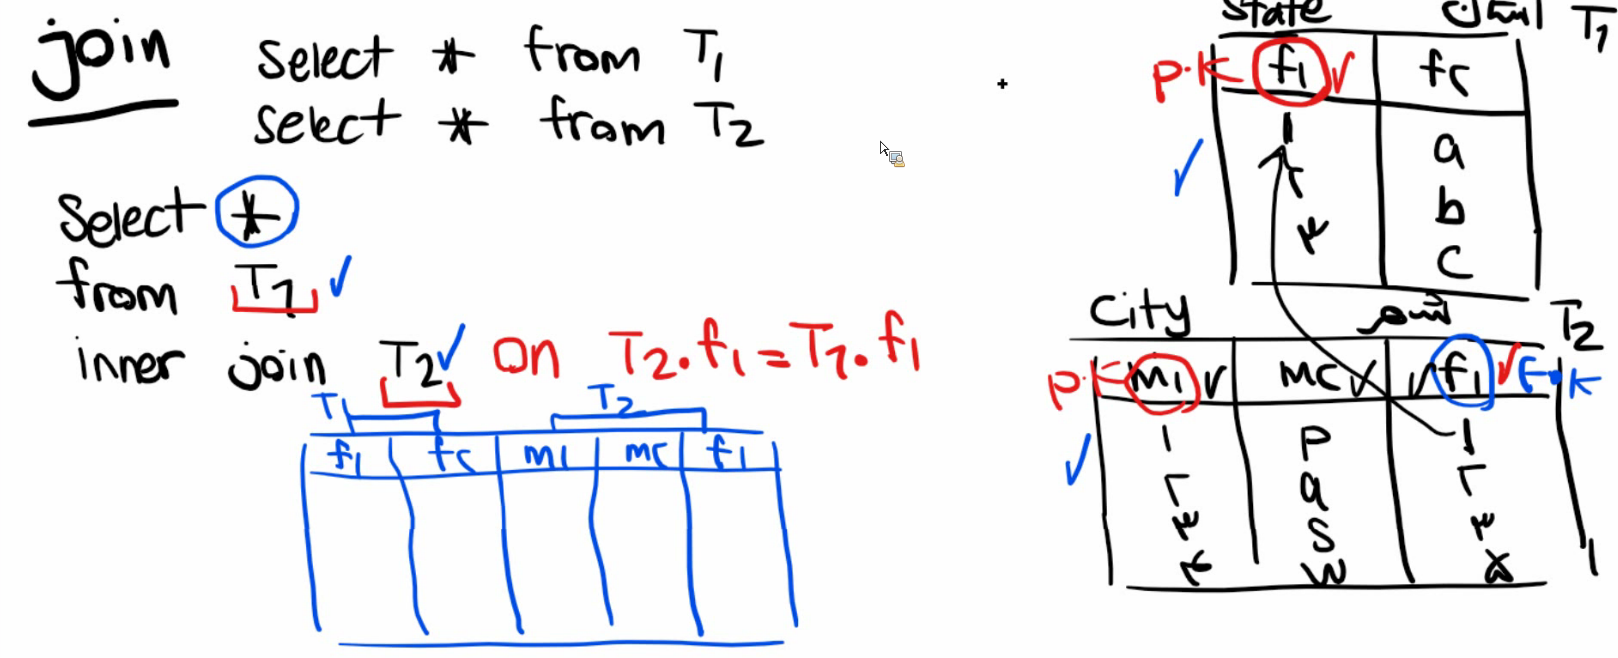 join
Select * from T1
Select * from T2
Select *
from T1
inner join T2 on T2.f1 = T1.f1
T1 T2
f1 f۲ m1 m۲ f1
State استان T1
P.K f1 f۲
۱ a
۲ b
۳ c
City شهر T2
P.K m1 m۲ f1 F.K
۱ P ۱
۲ a ۲
۳ S ۳
۴ W